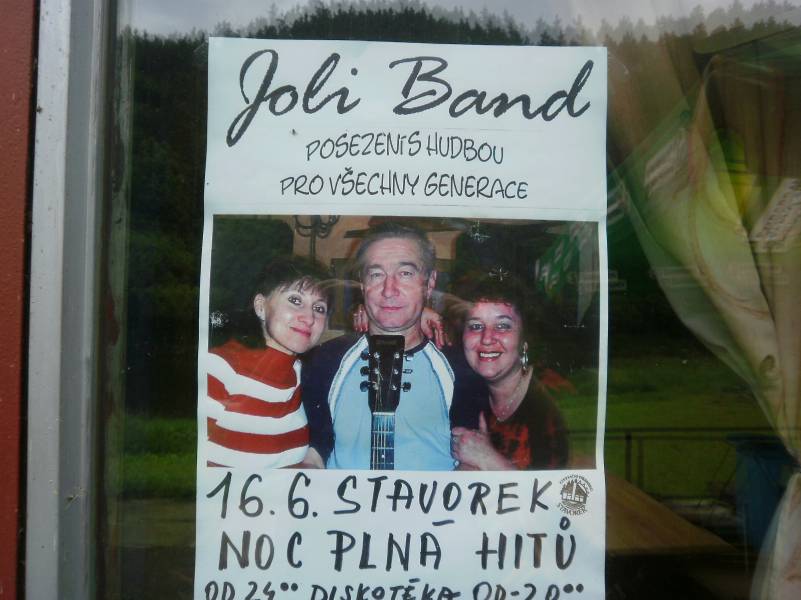 Joli Band
POSEZENÍ S HUDBOU
PRO VŠECHNY GENERACE
16.6. STAVOREK
STAVOREK
NOC PLNÁ HITŮ
OD 24⁰⁰ DISKOTÉKA OD-20⁰⁰